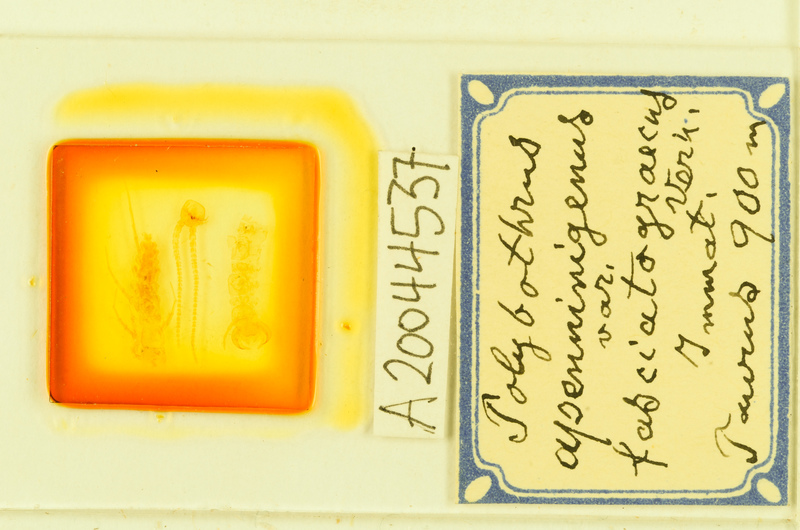 A20044537
Polybothrus
apenninigenus
var.
fasciatograecus
Verh.
Immat.
Taurus 900 m